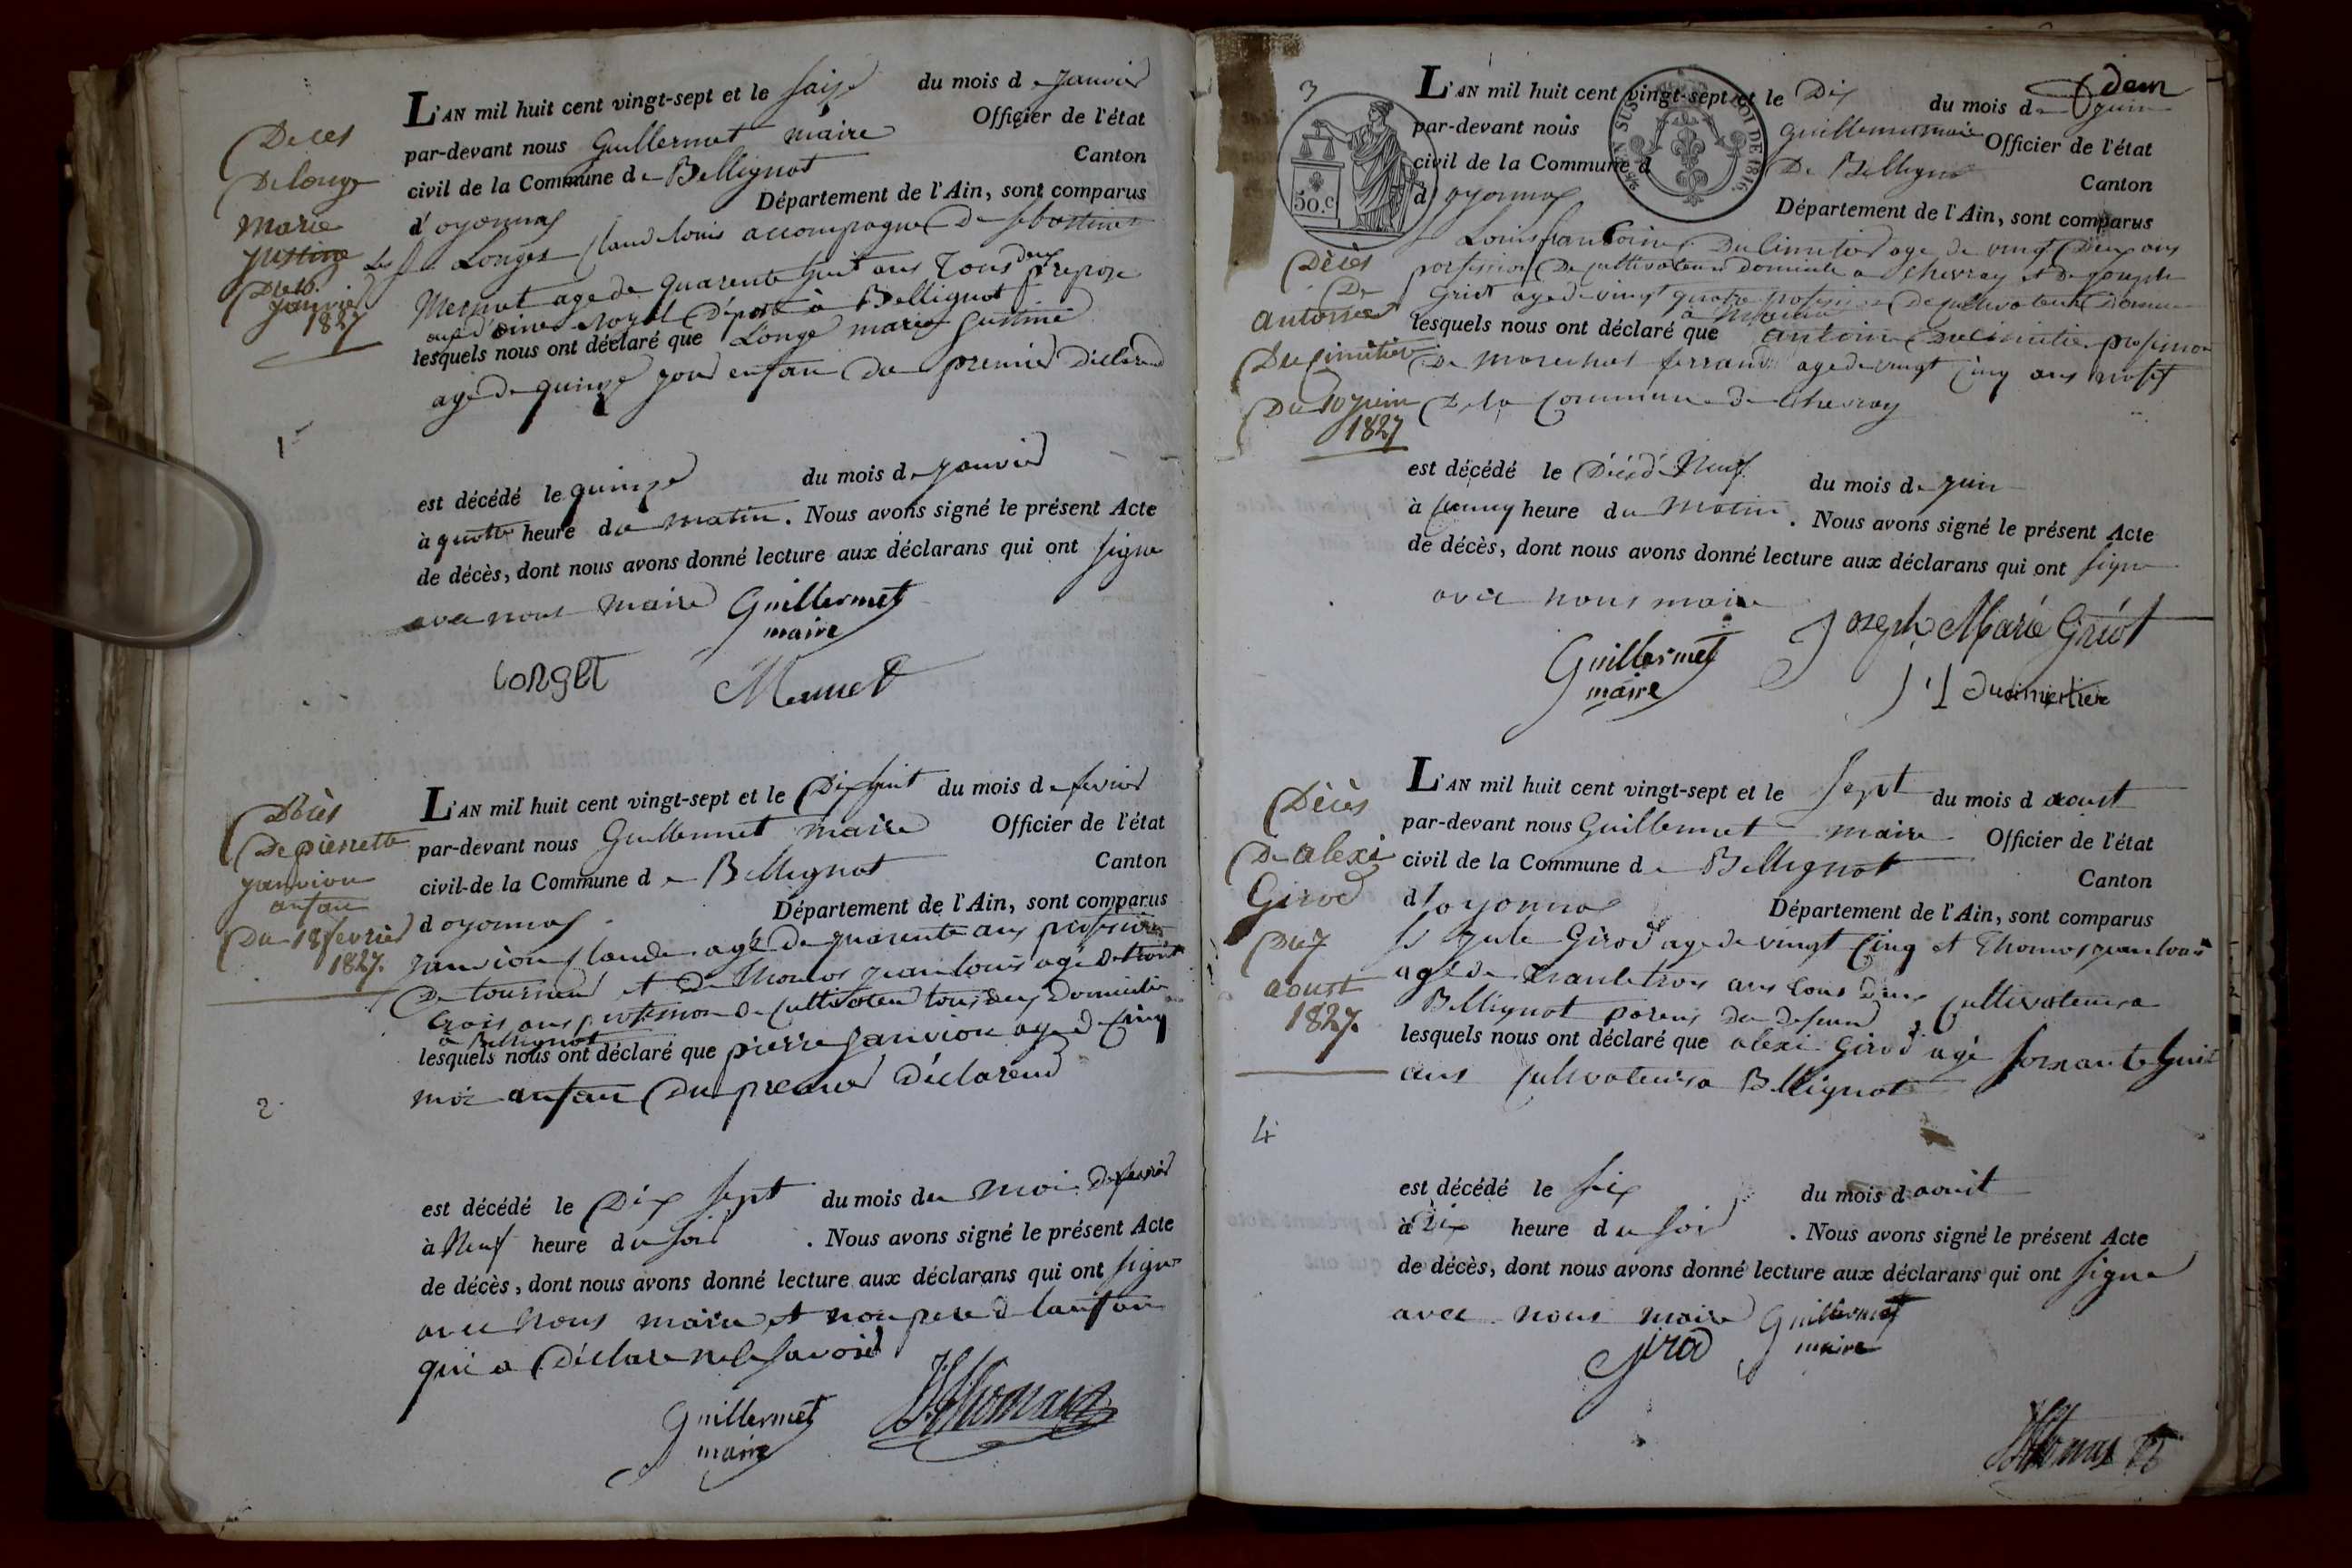 Deces
De longe
marie
justine
Du 16
janvier
1827
1
L'AN mil huit cent vingt-sept et le saize du mois de janvier
par-devant nous Guillermet maire Officier de l'état
civil de la Commune de Bellignat Canton
d'oyonnas Département de l'Ain, sont comparus
Longet Claude louis accompagne De sebastien
Mermet age de quarente huit ans Tous deux prepose
lesquels nous ont déclaré que Longe marie justine
age de quinze jour enfan du premier Diclarend
est décédé le quinze du mois de janvier
à quatre heure du matin. Nous avons signé le présent Acte
de décès, dont nous avons donné lecture aux déclarans qui ont signe
avec nous maire Guillermet
maire
Longet Mermet
Décès
De pierrette
janvion
anfan
Du 18 fevrier
1827.
2
L'AN mil huit cent vingt-sept et le Dix huit du mois de fevrier
par-devant nous Guillermet maire Officier de l'état
civil de la Commune de Bellignat Canton
d oyonnas Département de l'Ain, sont comparus
janvion Claude agé de quarente ans profession
De tourneur et De Thomas jean louis agé de trente
trois ans profession de cultivateur tous deux Domicilie
a Bellignat
lesquels nous ont déclaré que pierre janvion age de cinq
moi anfan Du premier Déclarend
est décédé le Dix sept du mois du moi de fevrier
à Neuf heure du soir. Nous avons signé le présent Acte
de décès, dont nous avons donné lecture aux déclarans qui ont signe
avec nous maire et non pere d lanfan
qui a Déclare ne le savoir
Guillermet JLThomas
maire
3
50.C
LOI DE 1816.
Décès
De
antoine
Ducimitière
Du 10 juin
1827
L'AN mil huit cent vingt-sept et le Dix du mois de juin
par-devant nous guillermet maire Officier de l'état
civil de la Commune d De Bellignat Canton
d'oyonnas Département de l'Ain, sont comparus
Louis francois Ducimitier age de vingt Deux ans
porfession De cultivateur Domicile a Chevray et De joseph
Griot age de vingt quatre profession De cultivateur Domicile
lesquels nous ont déclaré que antoine Ducimitie profession
De marechal ferrand age de vingt cinq ans natif
De la Commune de Chevray
est décédé le Décéd Neuf du mois de juin
à heure du Matin. Nous avons signé le présent Acte
de décès, dont nous avons donné lecture aux déclarans qui ont signe
avec nous maire
Guillermet Joseph Marie Griot
maire Ducimetiere
Décès
De alexi
Girod
Du 7
aoust
1827.
4
L'AN mil huit cent vingt-sept et le sept du mois d aoust
par-devant nous Guillermet maire Officier de l'état
civil de la Commune de Bellignat Canton
d'oyonnas Département de l'Ain, sont comparus
jule Girod age de vingt cinq et Thomas jean louis
agé de trante trois ans tous deux cultivateur a
Bellignat parens du defund
lesquels nous ont déclaré que alexi Girod agé soixante huit
ans cultivateur a Bellignat
est décédé le six du mois d aout
à Dix heure du soir. Nous avons signé le présent Acte
de décès, dont nous avons donné lecture aux déclarans qui ont signe
avec nous maire Guillermet
girod maire
JLThomas